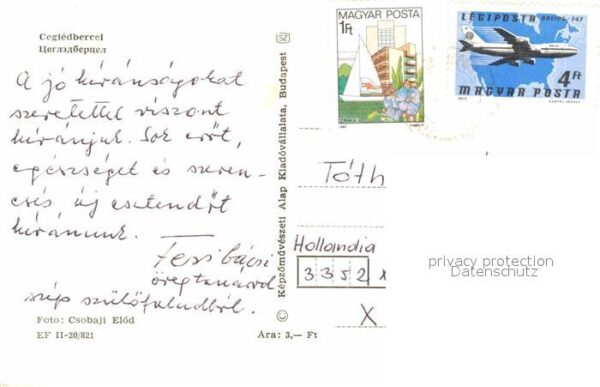 Ceglédbercel
Цеглэдберцел
A jó kívánságokat
szeretettel viszont
kívánjuk. Sok erőt,
egészséget és szeren-
csés új esztendőt
kívánunk.
Feri bácsi
öreg tanárod
szép szülőfaludból.
Foto: Csobaji Előd
EF II-20/821
Ára: 3,— Ft
SZ
Képzőművészeti Alap Kiadóvállalata, Budapest
MAGYAR POSTA
1Ft
ZÁNKA
LÉGIPOSTA BOEING-747
4Ft
MAGYAR POSTA
Tóth
Hollandia
3352 x
X
privacy protection
Datenschutz